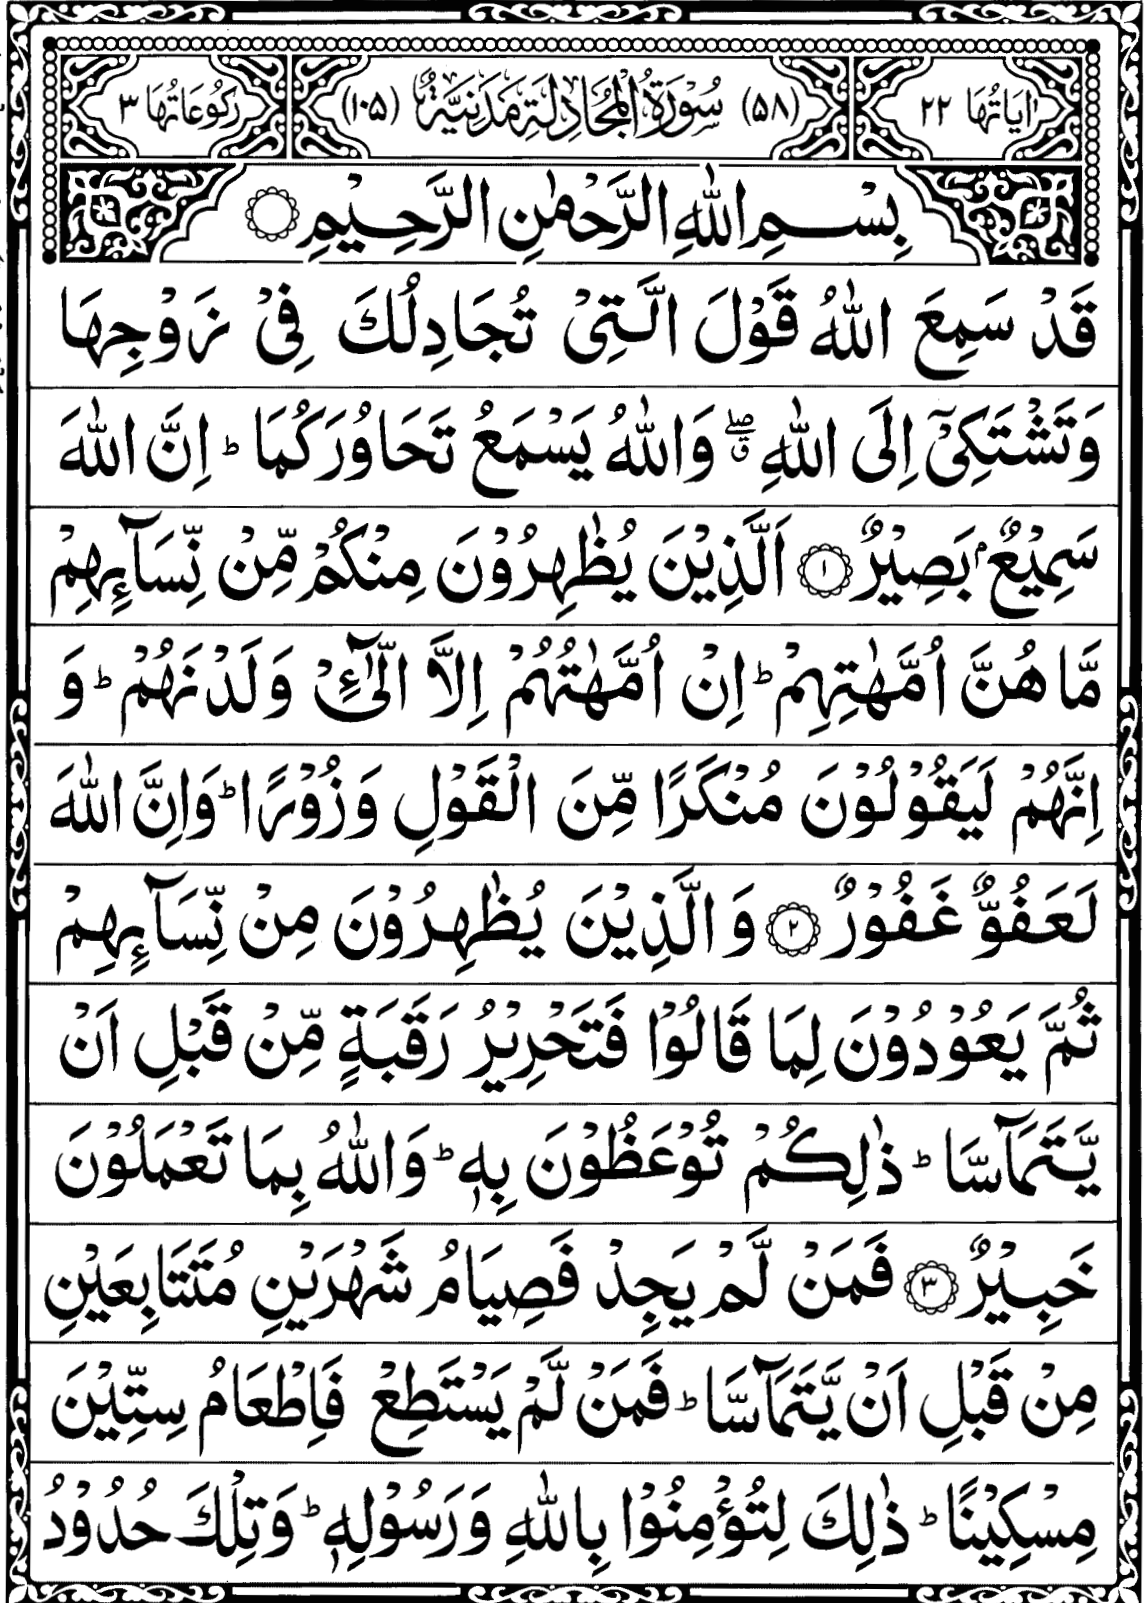 اٰيَاتُهَا ٢٢ (٥٨) سُوْرَةُ الْمُجَادِلَةِ مَدَنِيَّةٌ (١٠٥) رُكُوْعَاتُهَا ٣
بِسْمِ اللّٰهِ الرَّحْمٰنِ الرَّحِيْمِ
قَدْ سَمِعَ اللّٰهُ قَوْلَ الَّتِىْ تُجَادِلُكَ فِىْ زَوْجِهَا
وَتَشْتَكِىْٓ اِلَى اللّٰهِ ۖۗ وَاللّٰهُ يَسْمَعُ تَحَاوُرَكُمَا ؕ اِنَّ اللّٰهَ
سَمِيْعٌۢ بَصِيْرٌ ﴿١﴾ اَلَّذِيْنَ يُظٰهِرُوْنَ مِنْكُمْ مِّنْ نِّسَآءِهِمْ
مَّا هُنَّ اُمَّهٰتِهِمْ ؕ اِنْ اُمَّهٰتُهُمْ اِلَّا الّٰٓـِٔىْ وَلَدْنَهُمْ ؕ وَ
اِنَّهُمْ لَيَقُوْلُوْنَ مُنْكَرًا مِّنَ الْقَوْلِ وَزُوْرًا ؕ وَاِنَّ اللّٰهَ
لَعَفُوٌّ غَفُوْرٌ ﴿٢﴾ وَالَّذِيْنَ يُظٰهِرُوْنَ مِنْ نِّسَآءِهِمْ
ثُمَّ يَعُوْدُوْنَ لِمَا قَالُوْا فَتَحْرِيْرُ رَقَبَةٍ مِّنْ قَبْلِ اَنْ
يَّتَمَآسَّا ؕ ذٰلِكُمْ تُوْعَظُوْنَ بِهٖ ؕ وَاللّٰهُ بِمَا تَعْمَلُوْنَ
خَبِيْرٌ ﴿٣﴾ فَمَنْ لَّمْ يَجِدْ فَصِيَامُ شَهْرَيْنِ مُتَتَابِعَيْنِ
مِنْ قَبْلِ اَنْ يَّتَمَآسَّا ؕ فَمَنْ لَّمْ يَسْتَطِعْ فَاِطْعَامُ سِتِّيْنَ
مِسْكِيْنًا ؕ ذٰلِكَ لِتُؤْمِنُوْا بِاللّٰهِ وَرَسُوْلِهٖ ؕ وَتِلْكَ حُدُوْدُ